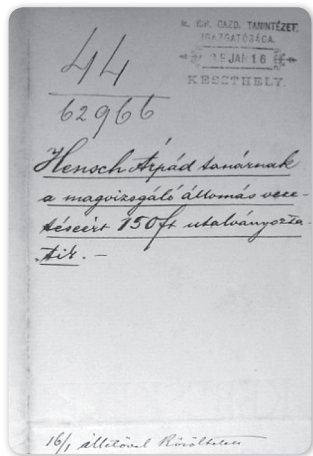 M. KIR. GAZD. TANINTÉZET
IGAZGATÓSÁGA.
JAN 16
KESZTHELY.
44
62966
Hensch Árpád tanárnak
a magvizsgáló állomás veze-
téseért 150 ft utalványozta-
tik. –
16/1